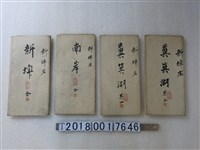 新埤庄
新埤
全
新埤庄
南岸
全
新埤庄
糞箕湖
新埤庄
糞箕湖
2018 001 7646